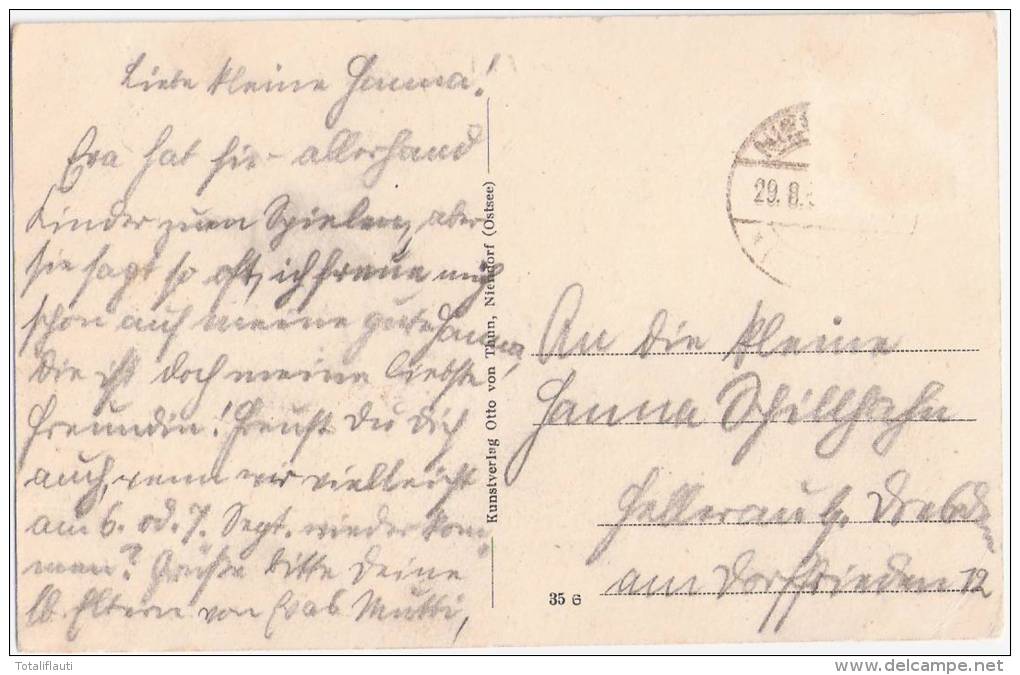 Liebe kleine Hanna!
Eva hat hier allerhand
Kinder zum Spielen, aber
sie sagt so oft, ich freue mich
schon auf meine gute Hanna,
die ist doch meine liebste
Freundin! Freust Du Dich
auch, wenn wir vielleicht
am 6. od. 7. Sept. wieder kom-
men? Grüße bitte Deine
lb. Eltern von Evas Mutti,
Kunstverlag Otto von Thun, Niendorf (Ostsee)
29.8.
An die kleine
Hanna Schillhahn
Hellerau b. Dresden
am Dorffrieden 12
35 6
Totaliflauti
www.delcampe.net